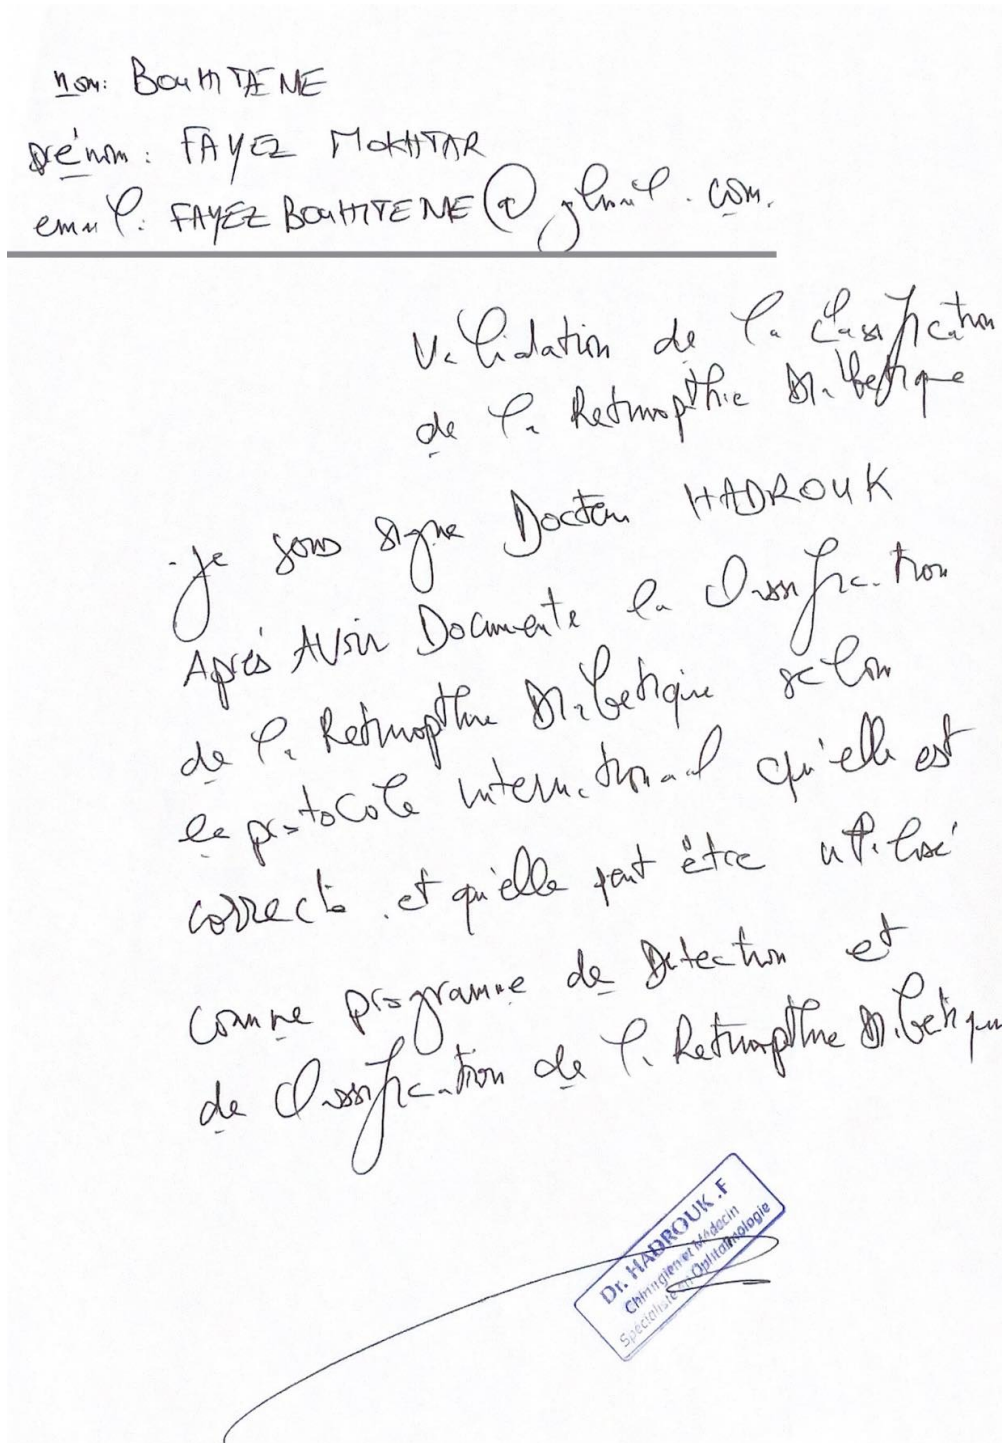 nom: BOUHTAENE
prénom: FAYEZ MOKHTAR
email: FAYEZ BOUHTENE@gmail.com.
Validation de la classification
de la Retinopthie Diabetique
Je sous signe Docteur HADROUK
Après AVoir Documente la Classification
de la Retinopthie Diabetique selon
le protocole international qu'elle est
correcte, et qu'elle peut être utilisé
comme programme de Detection et
de Classification de la Retinopthie Diabetique
Dr. HADROUK .F
Chirurgien et Médecin
Spécialiste en Ophtalmologie